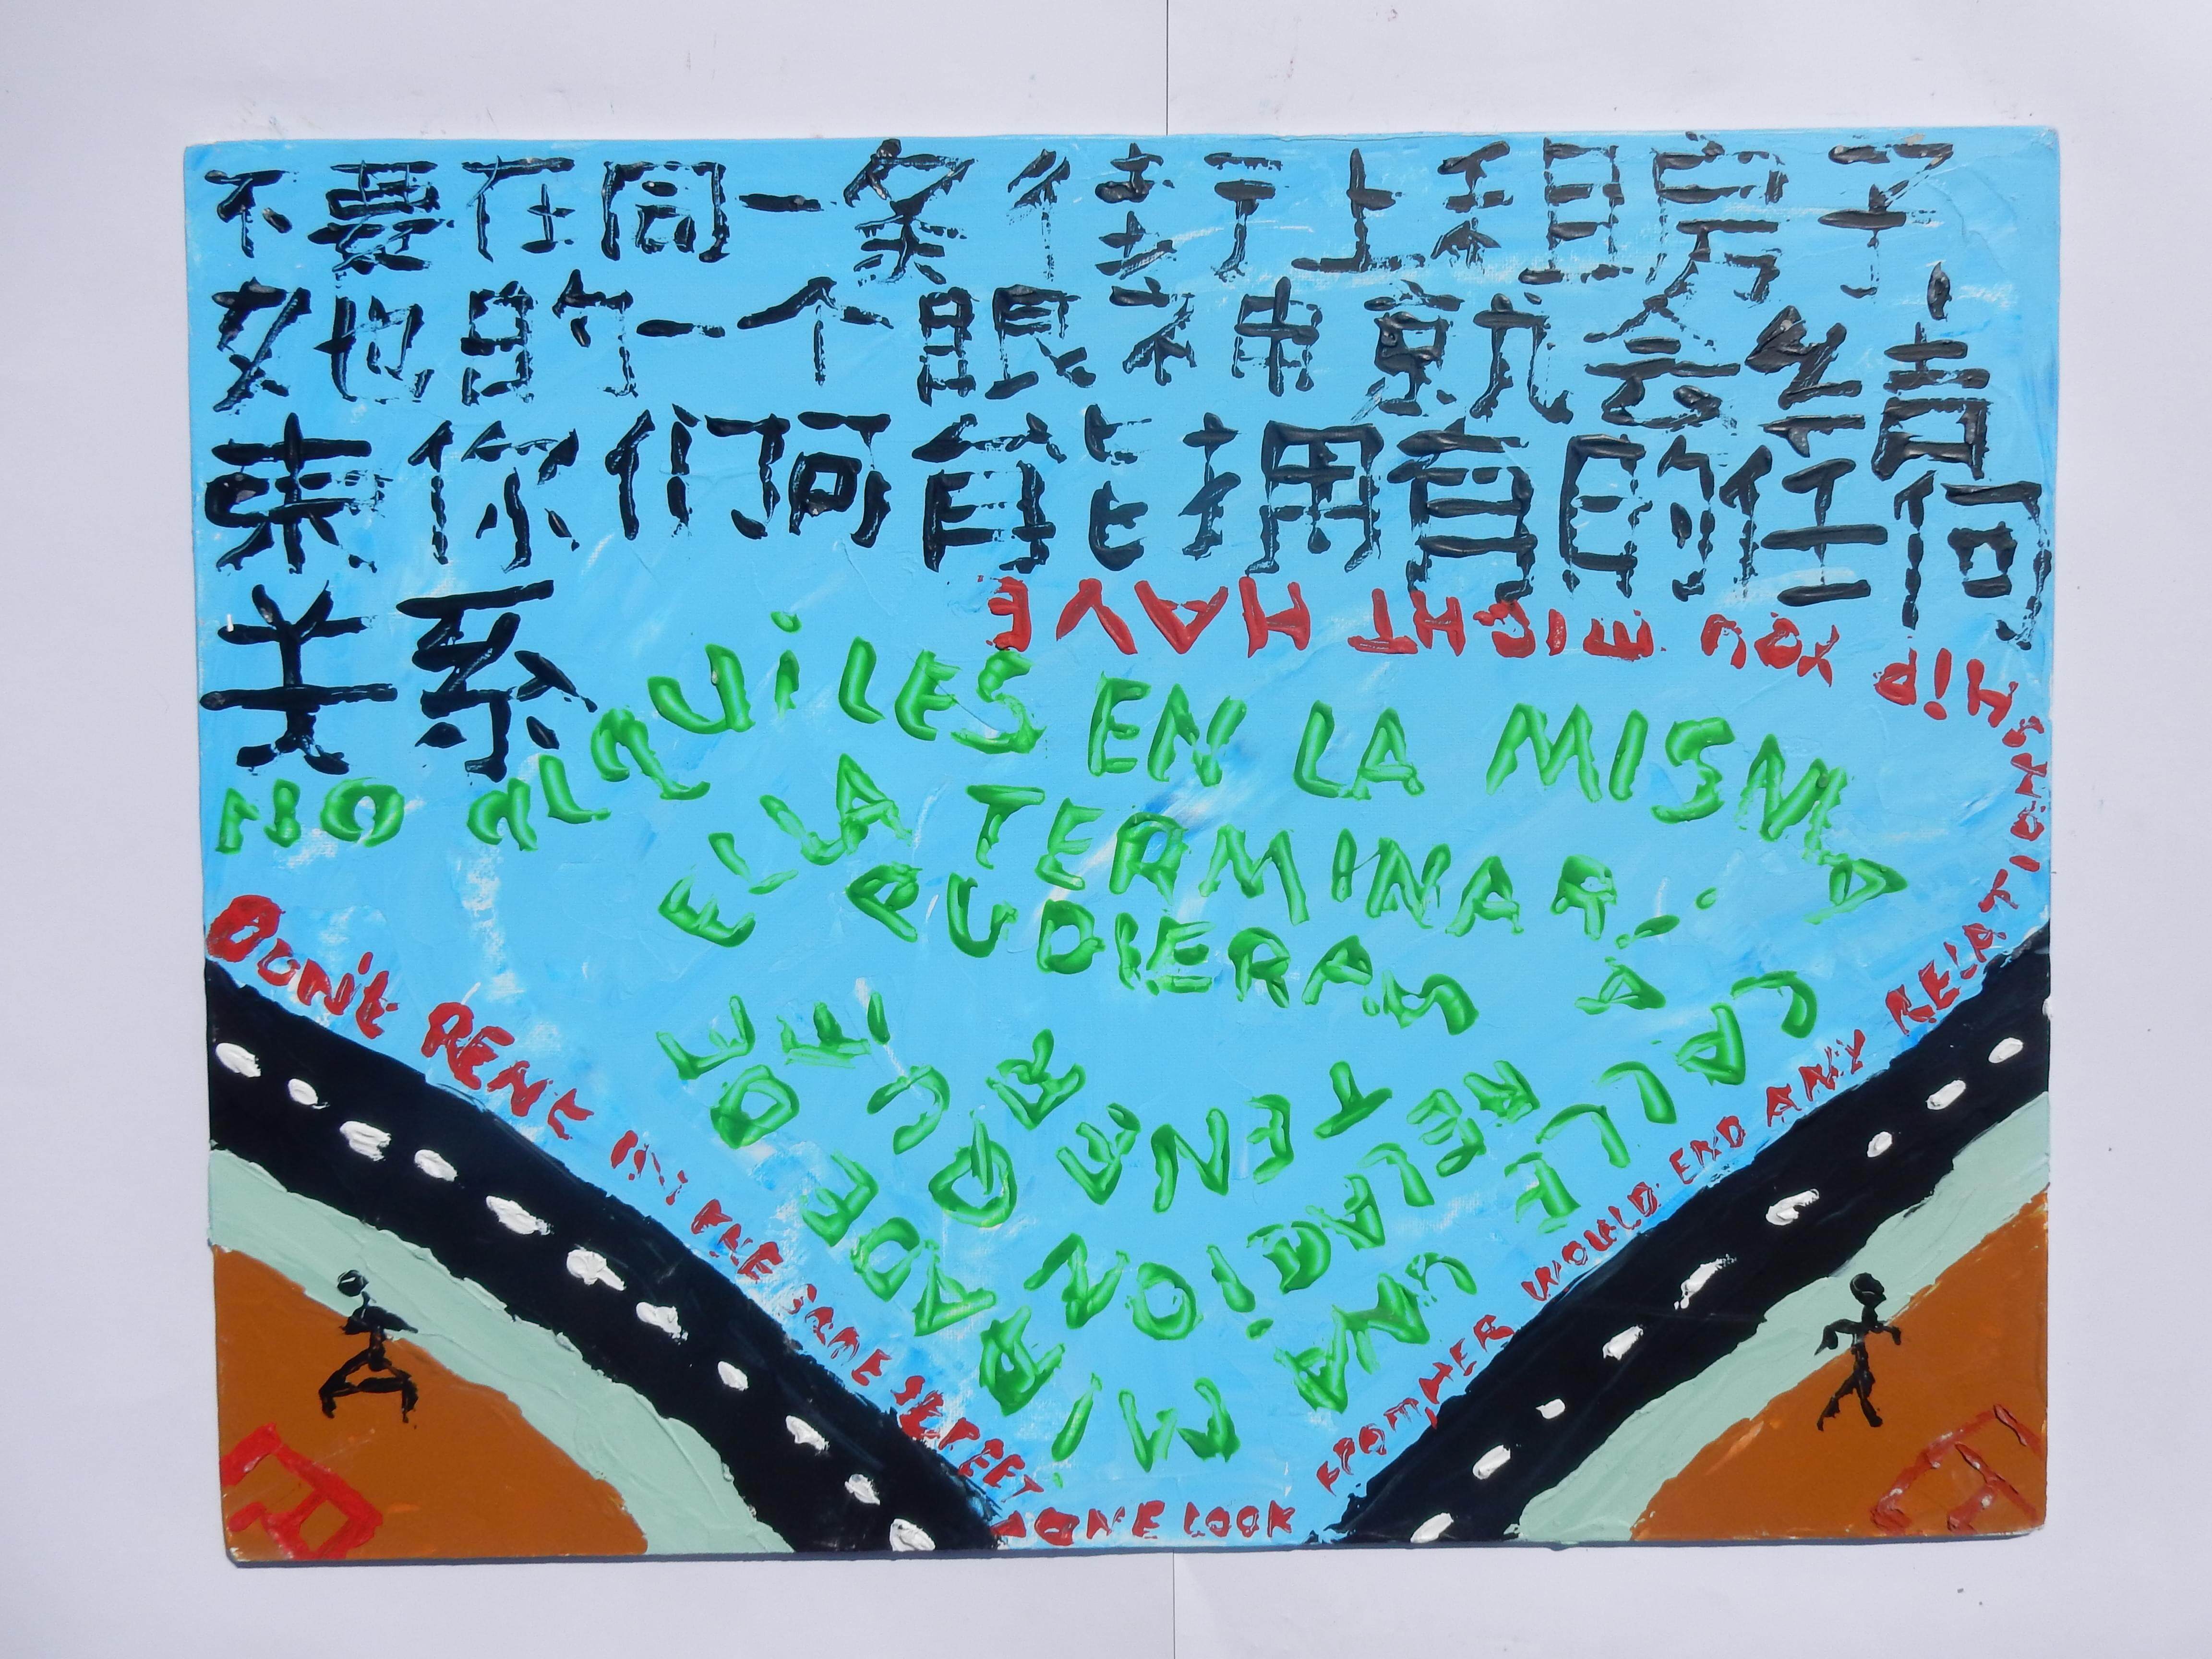 不要在同一条街上租房子
她的一个眼神就会结
束你们可能拥有的任何
关系
NO ALQUiLES EN LA MISMA CALLE UNA MiRADE DE ELLA TERMINARiA RELACiON QUE PUDIERAS TENER
DON'T RENT IN THE SAME STREET ONE LOOK FROM HER WOULD END ANY RELATIONSHiP YOU MIGHT HAVE
R